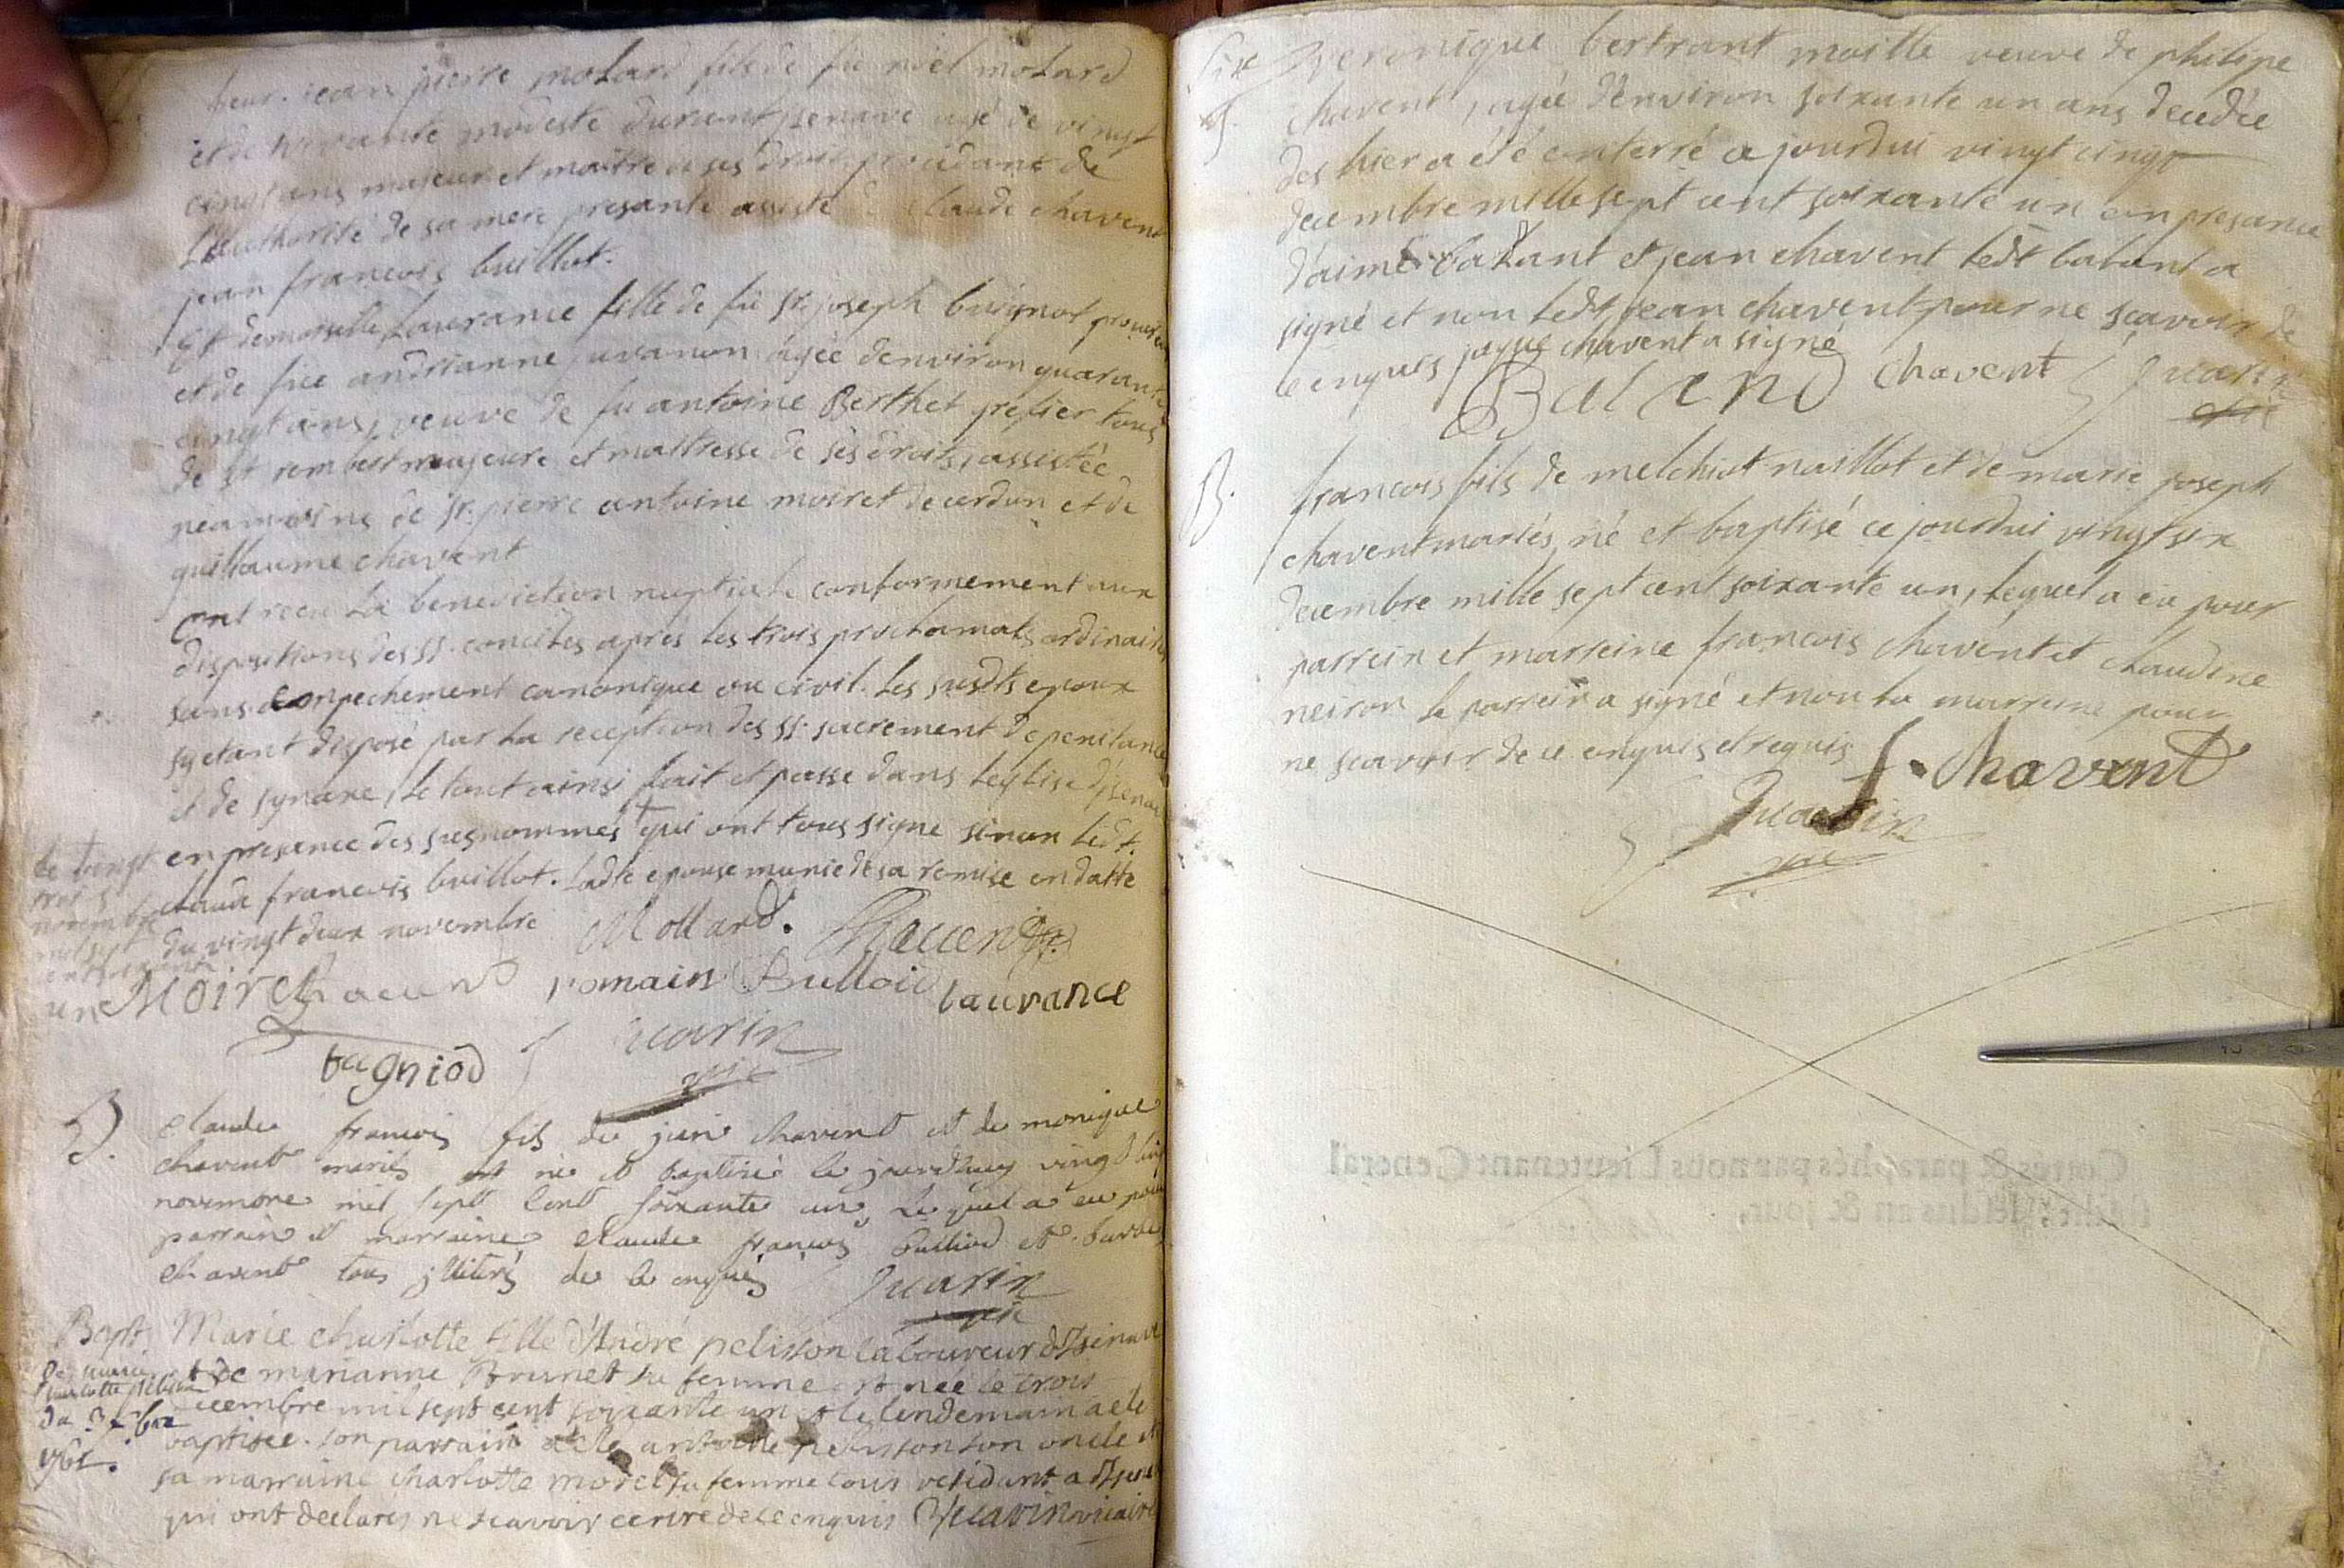 sieur jean pierre molard fils de fû noel molard
et de vivante modeste durant jsenave agé de vingt
cinq ans majeur et maitre de ses droits procedant de
L'authorité de sa mere presante assisté de claude chavent
jean francois buillot.
Et demoiselle Laurance fille de fû Sr. joseph buignot
et de fûe andrianne juvanon agée denviron quarante
cinqt ans, veuve de fû antoine Berthet
de st rembert majeure et maitresse de ses droits, assistée
neamoins de Sr. pierre antoine moiret de cerdon et de
guillaume chavent
ont recu la benediction nuptiale conformement aux
dispositions des SS. conciles après les trois proclamats ordinaires
sans empechement canonique ou civil. les susdts epoux
sy etant disposé par la reception des SS. sacrement de penitance
et de synaxe, le tout ainsi fait et passé dans leglise djsenave
en presence des susnommés + qui ont tous signe sinon ledt.
claude francois buillot. Ladte epouse munie de sa remise en datte
du vingt deux novembre Mollard. Chavent
le vingt
trois
novembre
mil sept
cent soixante
un
Moiret chavent romain Bulloid laurance
bugniod Juarin
vic
B.
claude francois fils de jean chavent et de monique
chavent mariés est né et baptisé le jourdhuy vingt cinq
novembre mil sept cent soixante un, Le quel a eu pour
parrain et marraine claude francois Bulliod et
chavent tous jlliterés de ce enquis Juarin
vic
Bapt.
de marie
charlotte pelisson
du 3 Xbre
1761.
Marie charlotte fille d'André pelisson laboureur d'Isenave
et de marianne Brunet sa femme est née le trois
decembre mil sept cent soixante un et le lendemain a été
baptisée. son parrain a été antoine pelisson son oncle et
sa marraine charlotte morel sa femme tous residant a Isenave
qui ont declarés ne scavoir ecrire de ce enquis Juarin vicaire
Veronique bertrant moille veuve de philipe
chavent, agée d'environ soixante un ans decedée
des hier a été enterré ce jourdui vingt cinqt
decembre mille sept cent soixante un en presance
d'aimé balant et jean chavent ledt balant a
signé et non ledt. jean chavent pour ne scavoir de
ce enquis jaque chavent a signé
Balend chavent Juarin
vic
B.
francois fils de melchiot naillot et de marie joseph
chavent mariés, né et baptisé ce jourdui vingt six
decembre mille sept cent soixante un, lequel a eu pour
parrein et marreine francois chavent et claudine
neiron le parrein a signé et non la marreine pour
ne scavoir de ce enquis et requis f. Chavent
Juarin
vic
Cottés & paraphés par nous Lieutenant General
susdits an & jour,